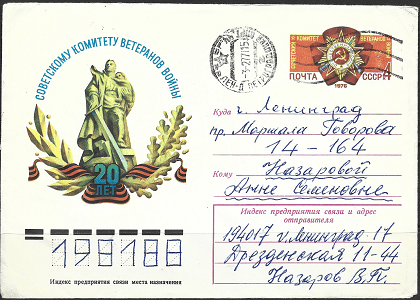 СОВЕТСКОМУ КОМИТЕТУ ВЕТЕРАНОВ ВОЙНЫ
20
ЛЕТ
КОМИТЕТ ВЕТЕРАНОВ
ПОЧТА СССР 4
1976
Куда г. Ленинград
пр. Маршала Говорова
14-164
Кому Назаровой
Анне Семеновне
Индекс предприятия связи и адрес
отправителя
194017 г. Ленинград-17
Дрезденская 11-44
Назаров В.П.
198188
Индекс предприятия связи места назначения